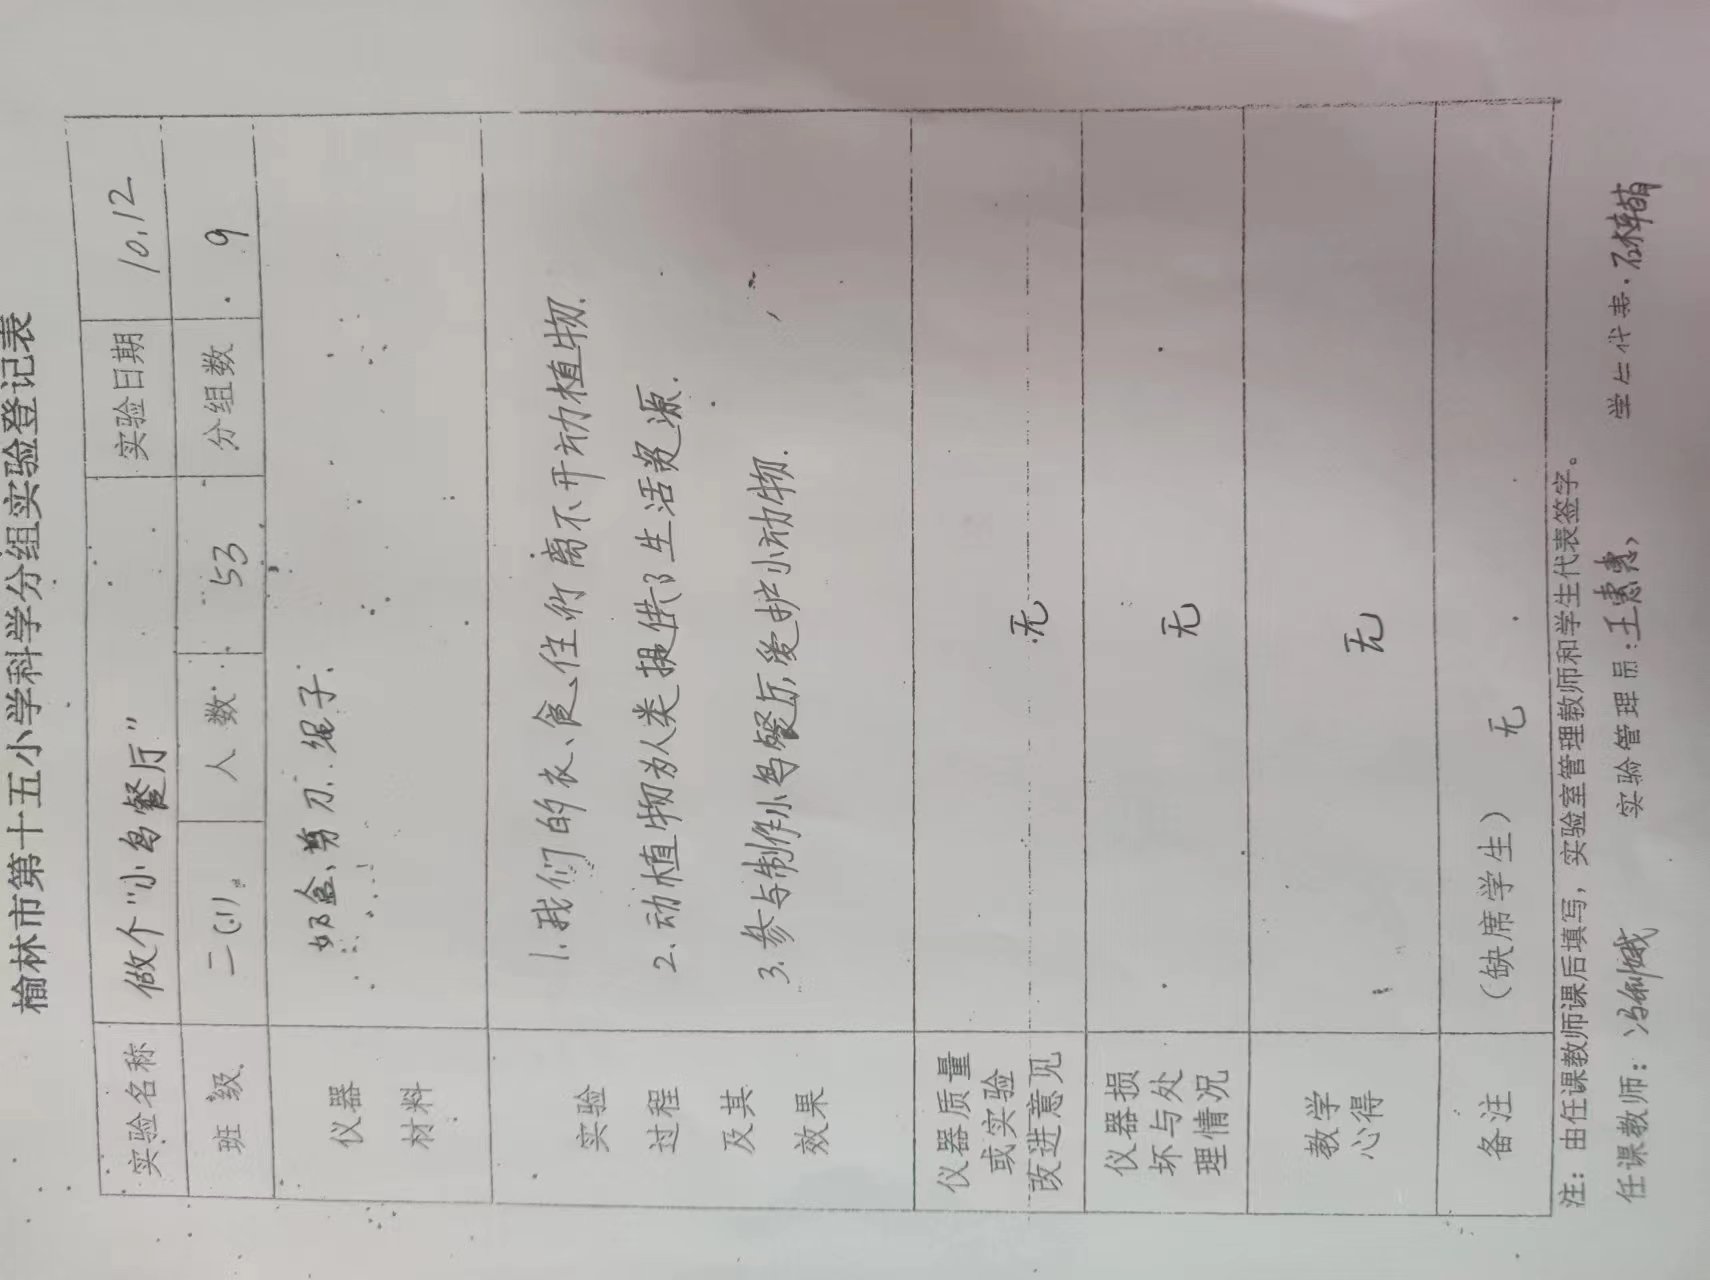 榆林市第十五小学科学分组实验登记表
实验名称 做个“小鸟餐厅” 实验日期 10.12
班级 二(1) 人数 53 分组数 9
仪器材料 奶盒、剪刀、绳子.
实验过程及其效果
1.我们的衣、食、住、行离不开动植物.
2.动植物为人类提供了生活资源.
3.参与制作小鸟餐厅,爱护小动物.
仪器质量或实验改进意见 无
仪器损坏与处理情况 无
教学心得 无
备注 （缺席学生） 无
注：由任课教师课后填写，实验室管理教师和学生代表签字。
任课教师： 实验管理员：王惠惠 学生代表：